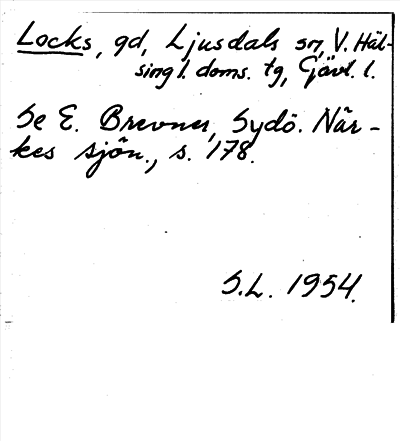 Locks, gd, Ljusdals sn, V. Häl-
singl. doms. tg, Gävl. l.
Se E. Brevner, Sydö. När-
kes sjön., s. 178.
S.L. 1954.